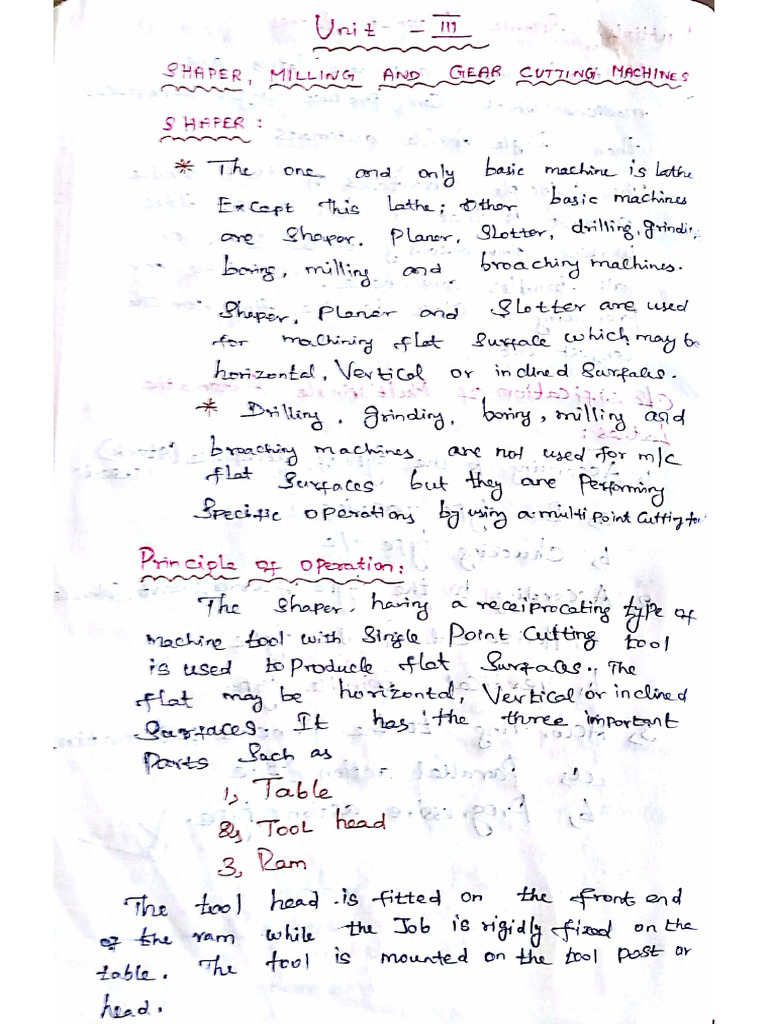 Unit - III
SHAPER, MILLING AND GEAR CUTTING MACHINES
SHAPER:
* The one and only basic machine is lathe
Except this lathe; Other basic machines
are Shaper, Planer, Slotter, drilling, grindin
boring, milling and broaching machines.
Shaper, Planer and Slotter are used
for machining flat Surface which may be
horizontal, Vertical or inclined Surfaces.
* Drilling, grinding, boring, milling and
broaching machines are not used for m/c
flat Surfaces but they are Performing
Specific operations by using a multi Point Cutting too
Principle of operation:
The Shaper, having a receiprocating type of
machine tool with Single Point Cutting tool
is used to Produce flat Surfaces. The
flat may be horizontal, Vertical or inclined
Surfaces. It has the three important
Parts Such as
1, Table
2, Tool head
3, Ram
The tool head is fitted on the front end
of the ram while the Job is rigidly fixed on the
table. The tool is mounted on the tool post or
head.